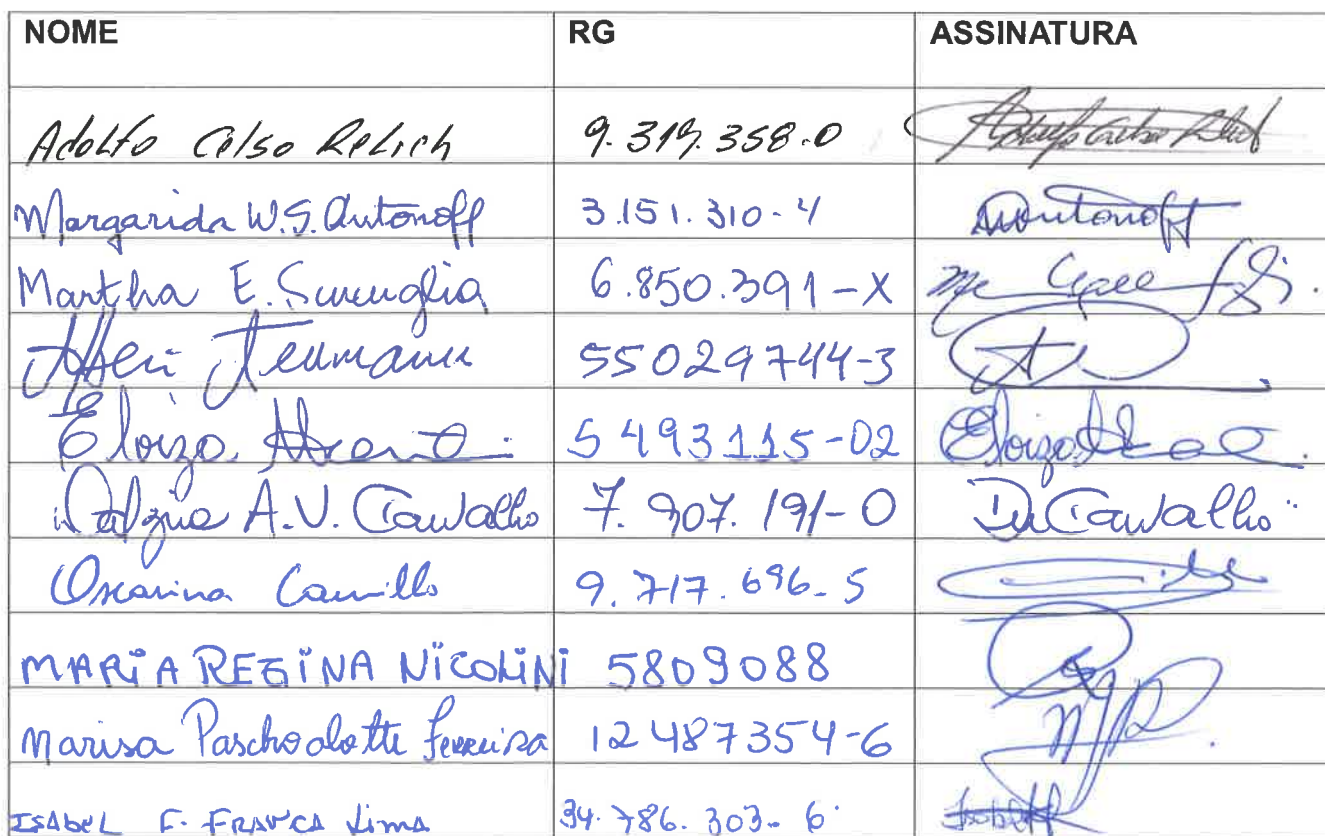 NOME RG ASSINATURA
Adolfo Celso Relich 9.319.358-0
Margarida W.S. Antonoff 3.151.310-4 Antonoff
Martha E. 6.850.391-X
Neumann 55029744-3
Eloiza 5493115-02 Eloiza
Dalzira A.V. Carvalho 7.907.191-0 Carvalho
Oscarina Camillo 9.717.696-5
MARIA REGINA NICOLINI 5809088
Marisa Paschoalotte Ferreira 12487354-6
ISAbEL F. FRANCA Lima 34.786.303-6